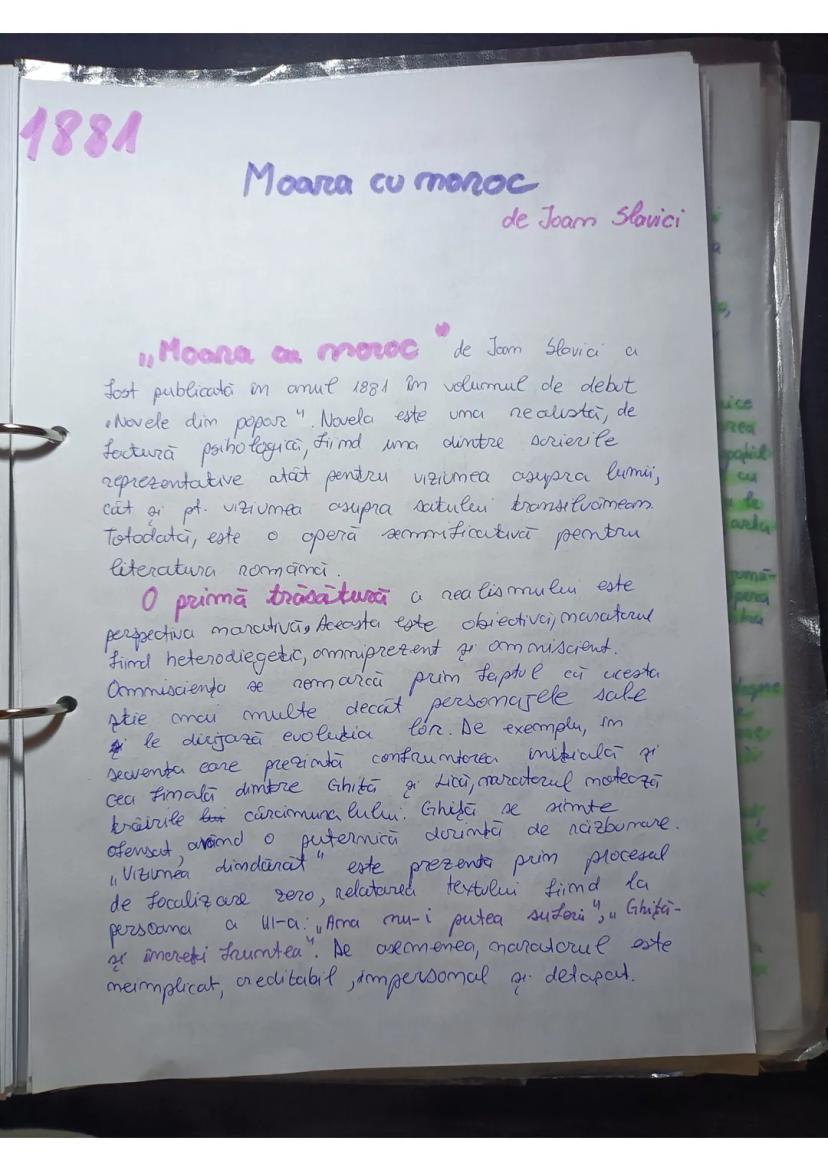 1881
Moara cu noroc
de Ioan Slavici
„Moara cu noroc" de Ioan Slavici a
fost publicată în anul 1881 în volumul de debut
„Novele din popor". Novela este una realistă, de
factură psihologică, fiind una dintre scrierile
reprezentative atât pentru viziunea asupra lumii,
cât și pt. viziunea asupra satului transilvănean.
Totodată, este o operă semnificativă pentru
literatura română.
O primă trăsătură a realismului este
perspectiva narativă. Aceasta este obiectivă, naratorul
fiind heterodiegetic, omniprezent și omniscient.
Omnisciența se remarcă prin faptul că acesta
știe mai multe decât personajele sale
și le dirijază evoluția lor. De exemplu, în
secvența care prezintă confruntarea inițială și
cea finală dintre Ghiță și Lică, naratorul notează
trăirile cârciumarului. Ghiță se simte
ofensat, având o puternică dorință de răzbunare.
„Viziunea dindărăt" este prezentă prin procesul
de focalizare zero, relatarea textului fiind la
persoana a III-a: „Ana nu-i putea suferi", „Ghiță-
și încreți fruntea". De asemenea, naratorul este
neimplicat, creditabil, impersonal și detașat.